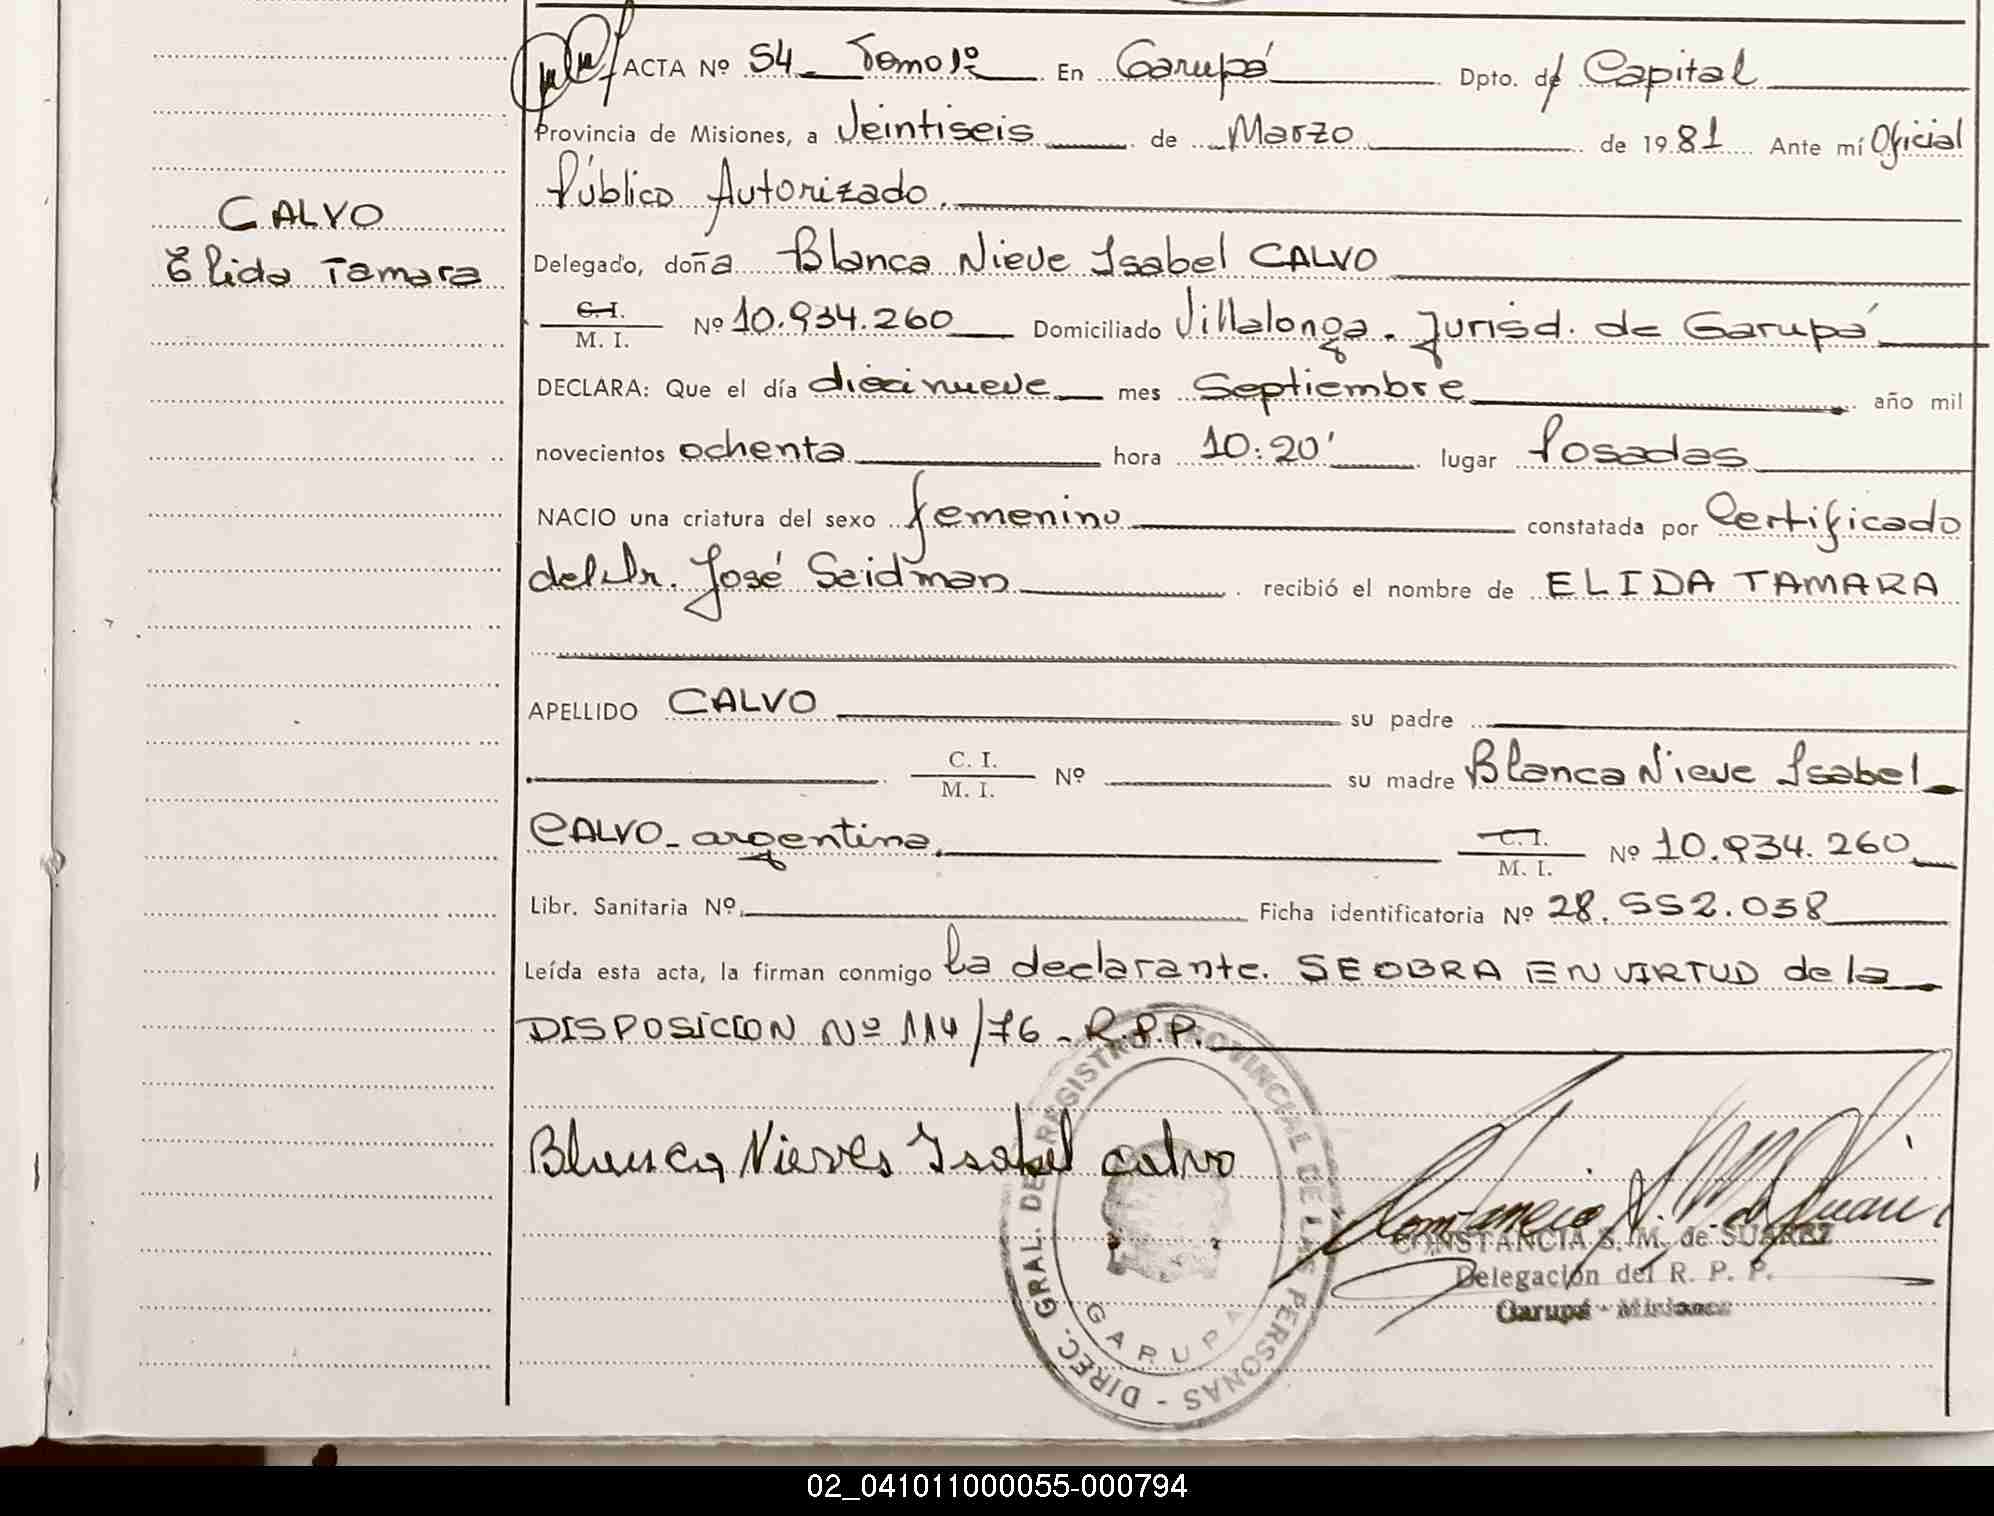 ACTA Nº 54 Tomo 1º En Garupá Dpto. de Capital
Provincia de Misiones, a Veintiseis de Marzo de 1981 Ante mí Oficial
Público Autorizado.
CALVO
Elida Tamara
Delegado, doña Blanca Nieve Isabel CALVO
C. I.
M. I. Nº 10.934.260 Domiciliado Villalonga. Jurisd. de Garupá
DECLARA: Que el día diecinueve mes Septiembre año mil
novecientos ochenta hora 10:20' lugar Posadas
NACIO una criatura del sexo femenino constatada por Certificado
del Dr. José Seidman recibió el nombre de ELIDA TAMARA
APELLIDO CALVO su padre
C. I.
M. I. Nº su madre Blanca Nieve Isabel
CALVO - argentina. C. I.
M. I. Nº 10.934.260
Libr. Sanitaria Nº. Ficha identificatoria Nº 28.552.038
Leída esta acta, la firman conmigo la declarante. SE OBRA EN VIRTUD de la
DISPOSICION Nº 114/76 - R.P.P.
Blanca Nieves Isabel calvo
DIREC. GRAL. DE REGISTRO PROVINCIAL DE LAS PERSONAS -
GARUPA
CONSTANCIA S. M. de SUAREZ
Delegación del R. P. P.
Garupá - Misiones
02_041011000055-000794